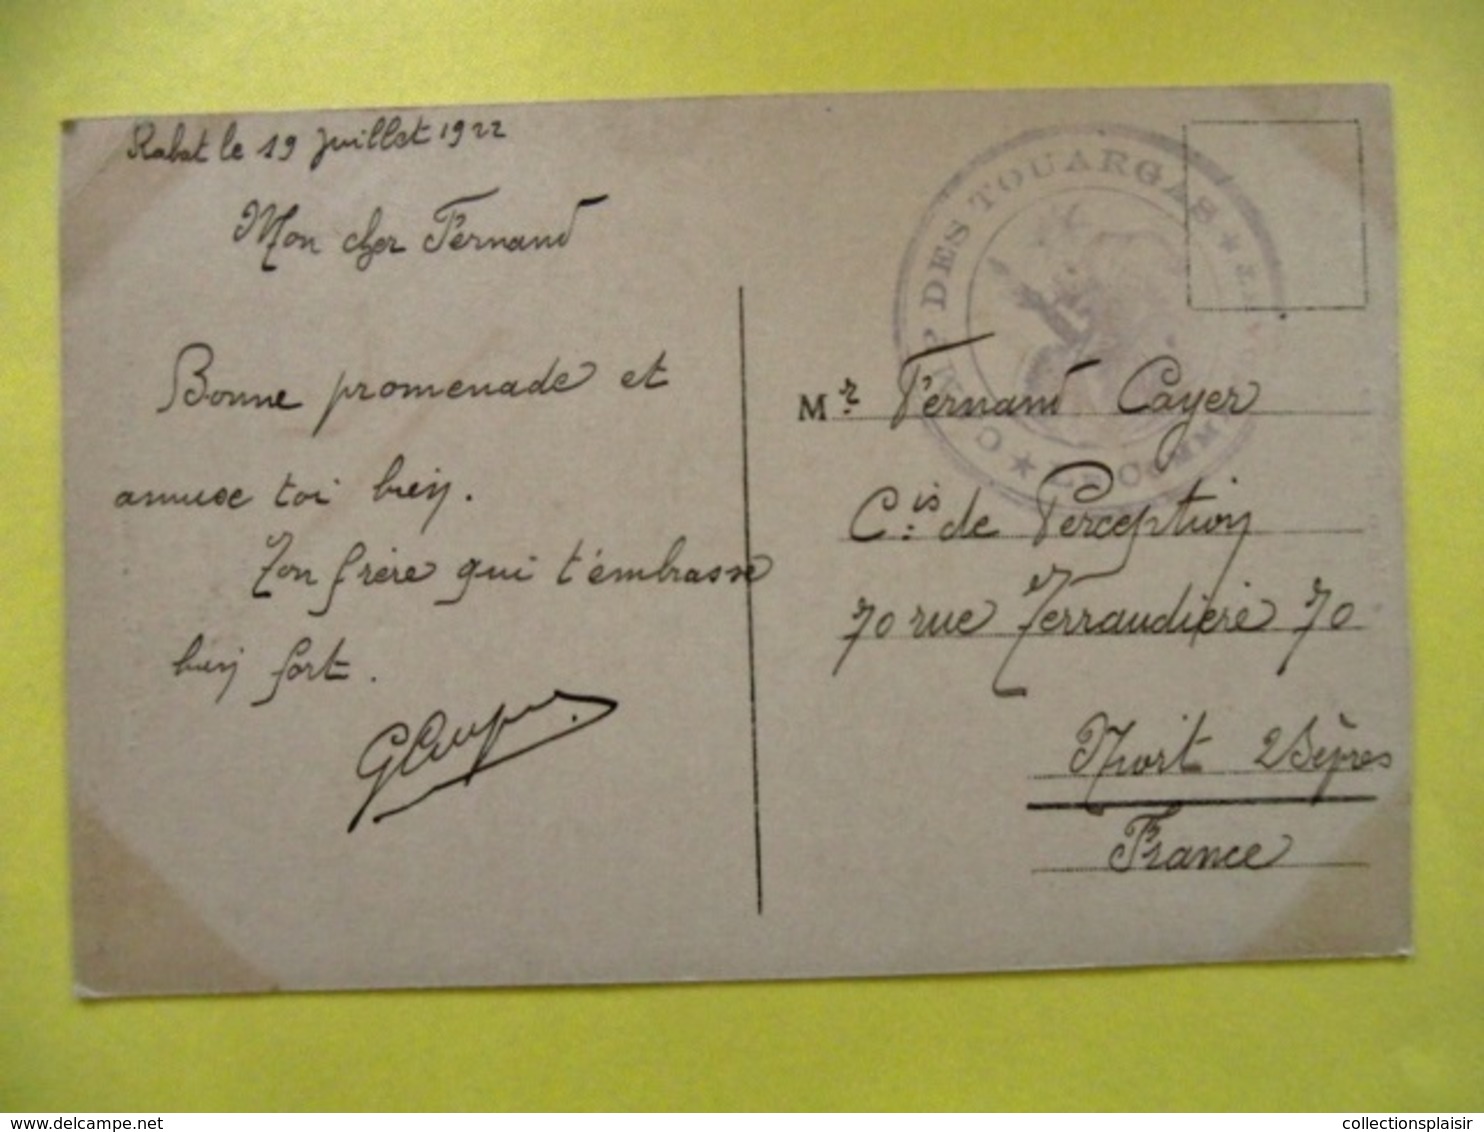 Rabat le 19 Juillet 1922
Mon cher Fernand
Bonne promenade et
amuse toi bien.
Ton frère qui t'embrasse
bien fort.
CAMP DES TOUARGAS
Mr. Fernand Cayer
C.is de Perception
70 rue Terraudière 70
Niort 2 Sèvres
France
collectionsplaisir